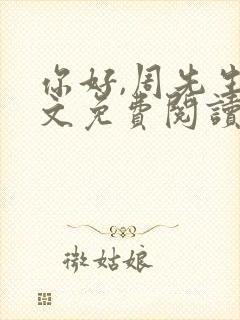 你好,周先生
文免费閱讀
微姑娘